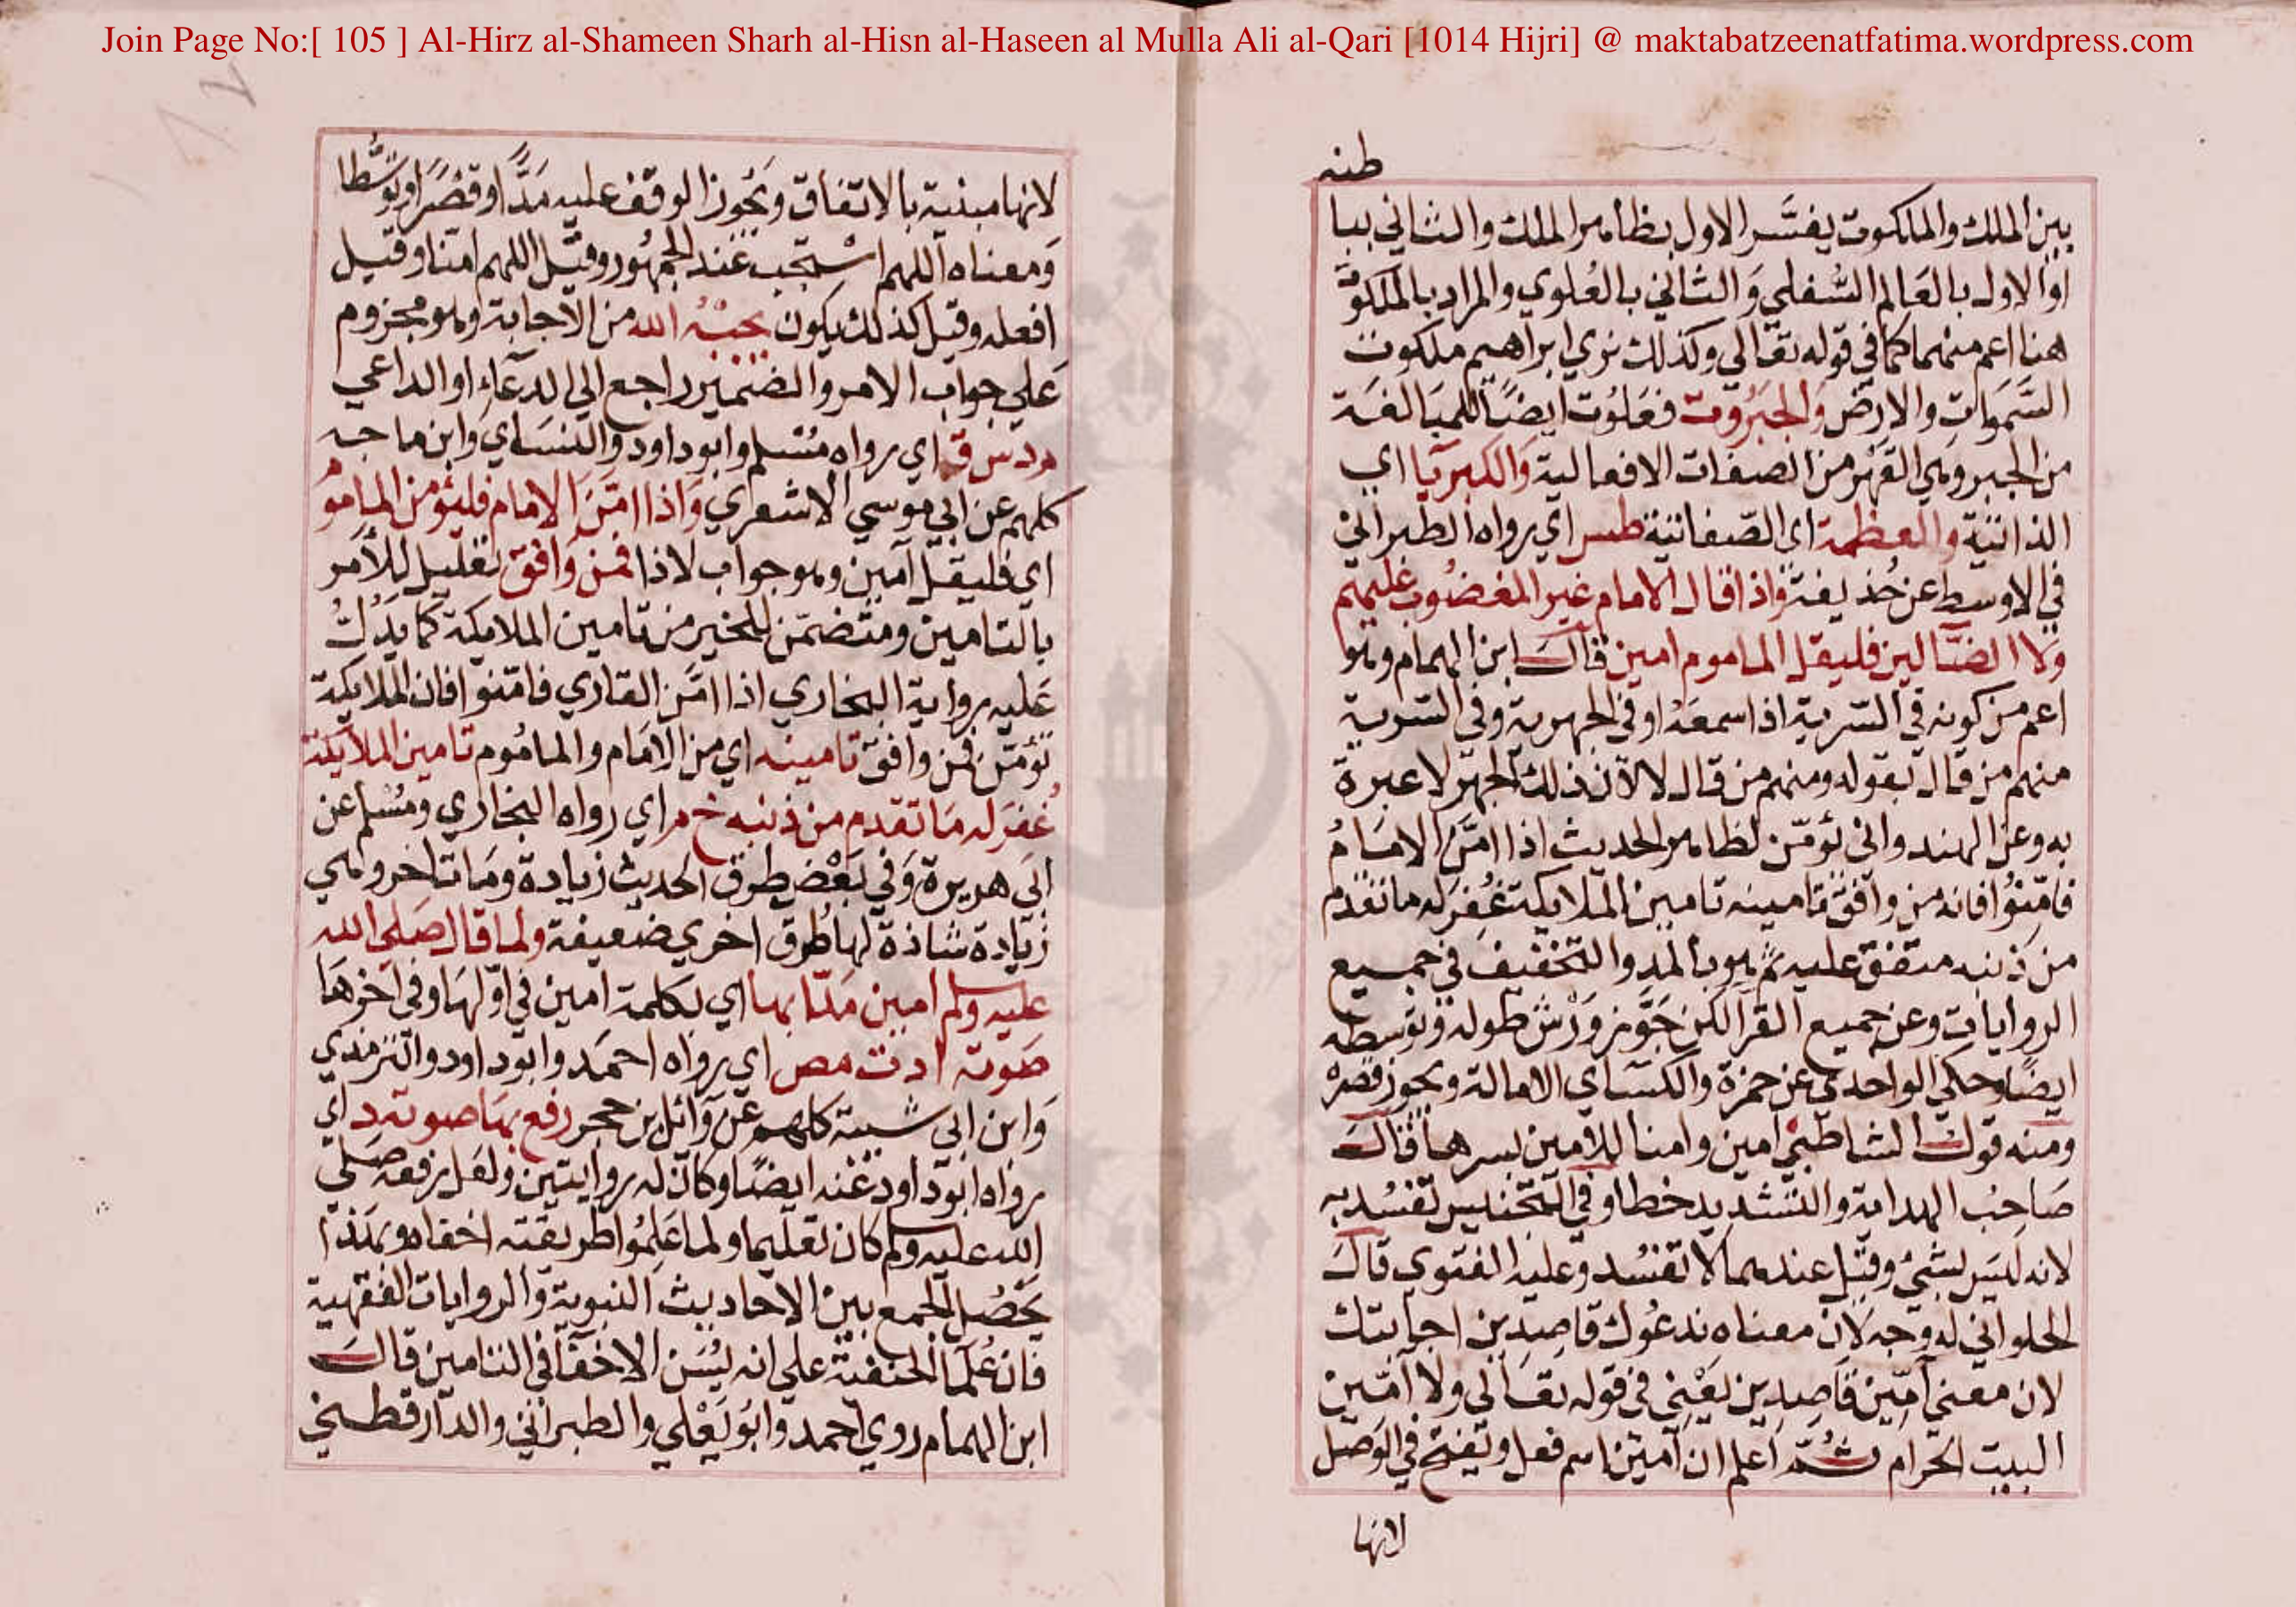 Join Page No:[ 105 ] Al-Hirz al-Shameen Sharh al-Hisn al-Haseen al Mulla Ali al-Qari [1014 Hijri] @ maktabatzeenatfatima.wordpress.com
طنه
بين الملك والملكوت يفسَّر الاول بظاهر الملك والثاني ببا
او الاول بالعَالم السُّفلي وَالثاني بالعُلوي والمراد بالملكوت
هنا اعم منهما كما في قوله تعالي وكذلك نري ابراهيم ملكوت
السَّمَوات والارض والجبَرُوت فعَلوُت ايضًا للمبَالغة
من الجبر وهي القهْر من الصفات الافعالية وَالكبريَا اي
الذاتية والعظمة اي الصّفاتية طس اي رواه الطبراني
في الاوسط عن حُذيفة واذا قال الامام غير المغضُوب عليهم
ولا الضآلين فليقل الماموم امين قالَ ابن الهمام وهو
اعم من كونه في السّرية اذا سمعَهُ او في الجهرية وفي السّرية
منهم من قال يقوله ومنهم من قال لا لان ذلك الجهر لا عبرة
به وعن الهندواني يؤمّن لظاهر الحديث اذا امَّنَ الامَامُ
فامّنوُا فانه من وافقَ تامينه تامين الملايكة غُفِرَ له ما تقدم
من ذنبه متفق عليه ثم هو بالمد والتخفيف في جميع
الروايات وعن جميع القرا لكن جَوَّز وَرْش طوله وتوسطه
ايضًا وحكي الواحدي عن حمزة والكسَاي الامالة ويجوز قصْرهُ
ومنه قوك الشاطبي امين وامنا للامين بسرها قالَ
صَاحِبُ الهداية والتشديد خطا وفي التجنيس تفسُد به
لانه ليَس بشيُ وقيْل عندهما لا تفسُد وعليه الفتوي قالَ
الحلواني له وجه لان معناه ندعُوك قاصدين اجابتك
لان معني آمّين قاصِدين يَعْني في قوله تعَالي ولا آمّين
البيت الحَرام ثُمَّ اعلم ان آمين اسم فعل ويفتح في الوَصل
لانها
لانها مبنية بالاتفاق ويجُوز الوقف عليه مَدًّا وقصْرًا وتوسُّطا
وَمعناه اللهم اسْتجب عند الجمهُور وقيْل اللهم امنا وقيل
افعله وقيل كذلك يكون يجبْهُ الله من الاجابة وهو مجزوم
عَلي جواب الامر والضمير راجع الي الدعَاءِ او الداعي
م د س ق اي رواه مُسْلم وابو داود والنسَاي وابن ماجه
كلهم عن ابي موسي الاشعري وَاذا امّنَ الامام فليؤمن المامُوم
اي فليقل آمين وهو جواب لاذا فمَن وَافق تعْليل للأمر
بالتامين ومتضمّن للخير من تامين الملايكة كما يَدُلُّ
عَليه رواية البخاري اذا امَّن القاري فامّنوا فان الملايكة
تؤمّن فمن وافق تامينه اي من الامَام والمامُوم تامين الملايكة
غُفرَ له مَا تقدم من ذنبه خ م اي رواه البخاري ومُسْلم عن
ابي هريرة وَفي بَعْض طرق الحديث زيادة ومَا تاخر وهي
زيَادة شاذة لها طُرق اخري ضعيفة ولما قال صَلي الله
عليه وسلم امين مَدّا بها اي بكلمة امين في اوّلهَا وفي اخرهَا
صَوته ا د ت مص اي رواه احمَد وابو داود والترمذي
وَابن ابي شيبة كلهم عن وَائل بن حجر رفع بهَا صوته د اي
رواه ابوُ داود عنه ايضًا وكان له روايتين ولعَل رفعه صَلي
الله عليه وسلم كان تعليما ولما عَلِمُوا طريقته اخفاه وبهَذا
يَحْصُل الجمع بين الاحاديث النبوية والروايات الفقهية
فان عُلمآ الحنفية علي انه يسُن الاخفآ في التامين قالَ
ابن الهمام روي احمد وَابوُ يَعْلي والطبراني والدّارقطني